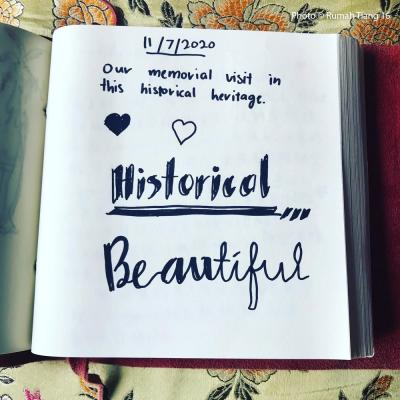 Photo © Rumah Tiang 16
11/7/2020
Our memorial visit in
this historical heritage.
Historical
Beautiful